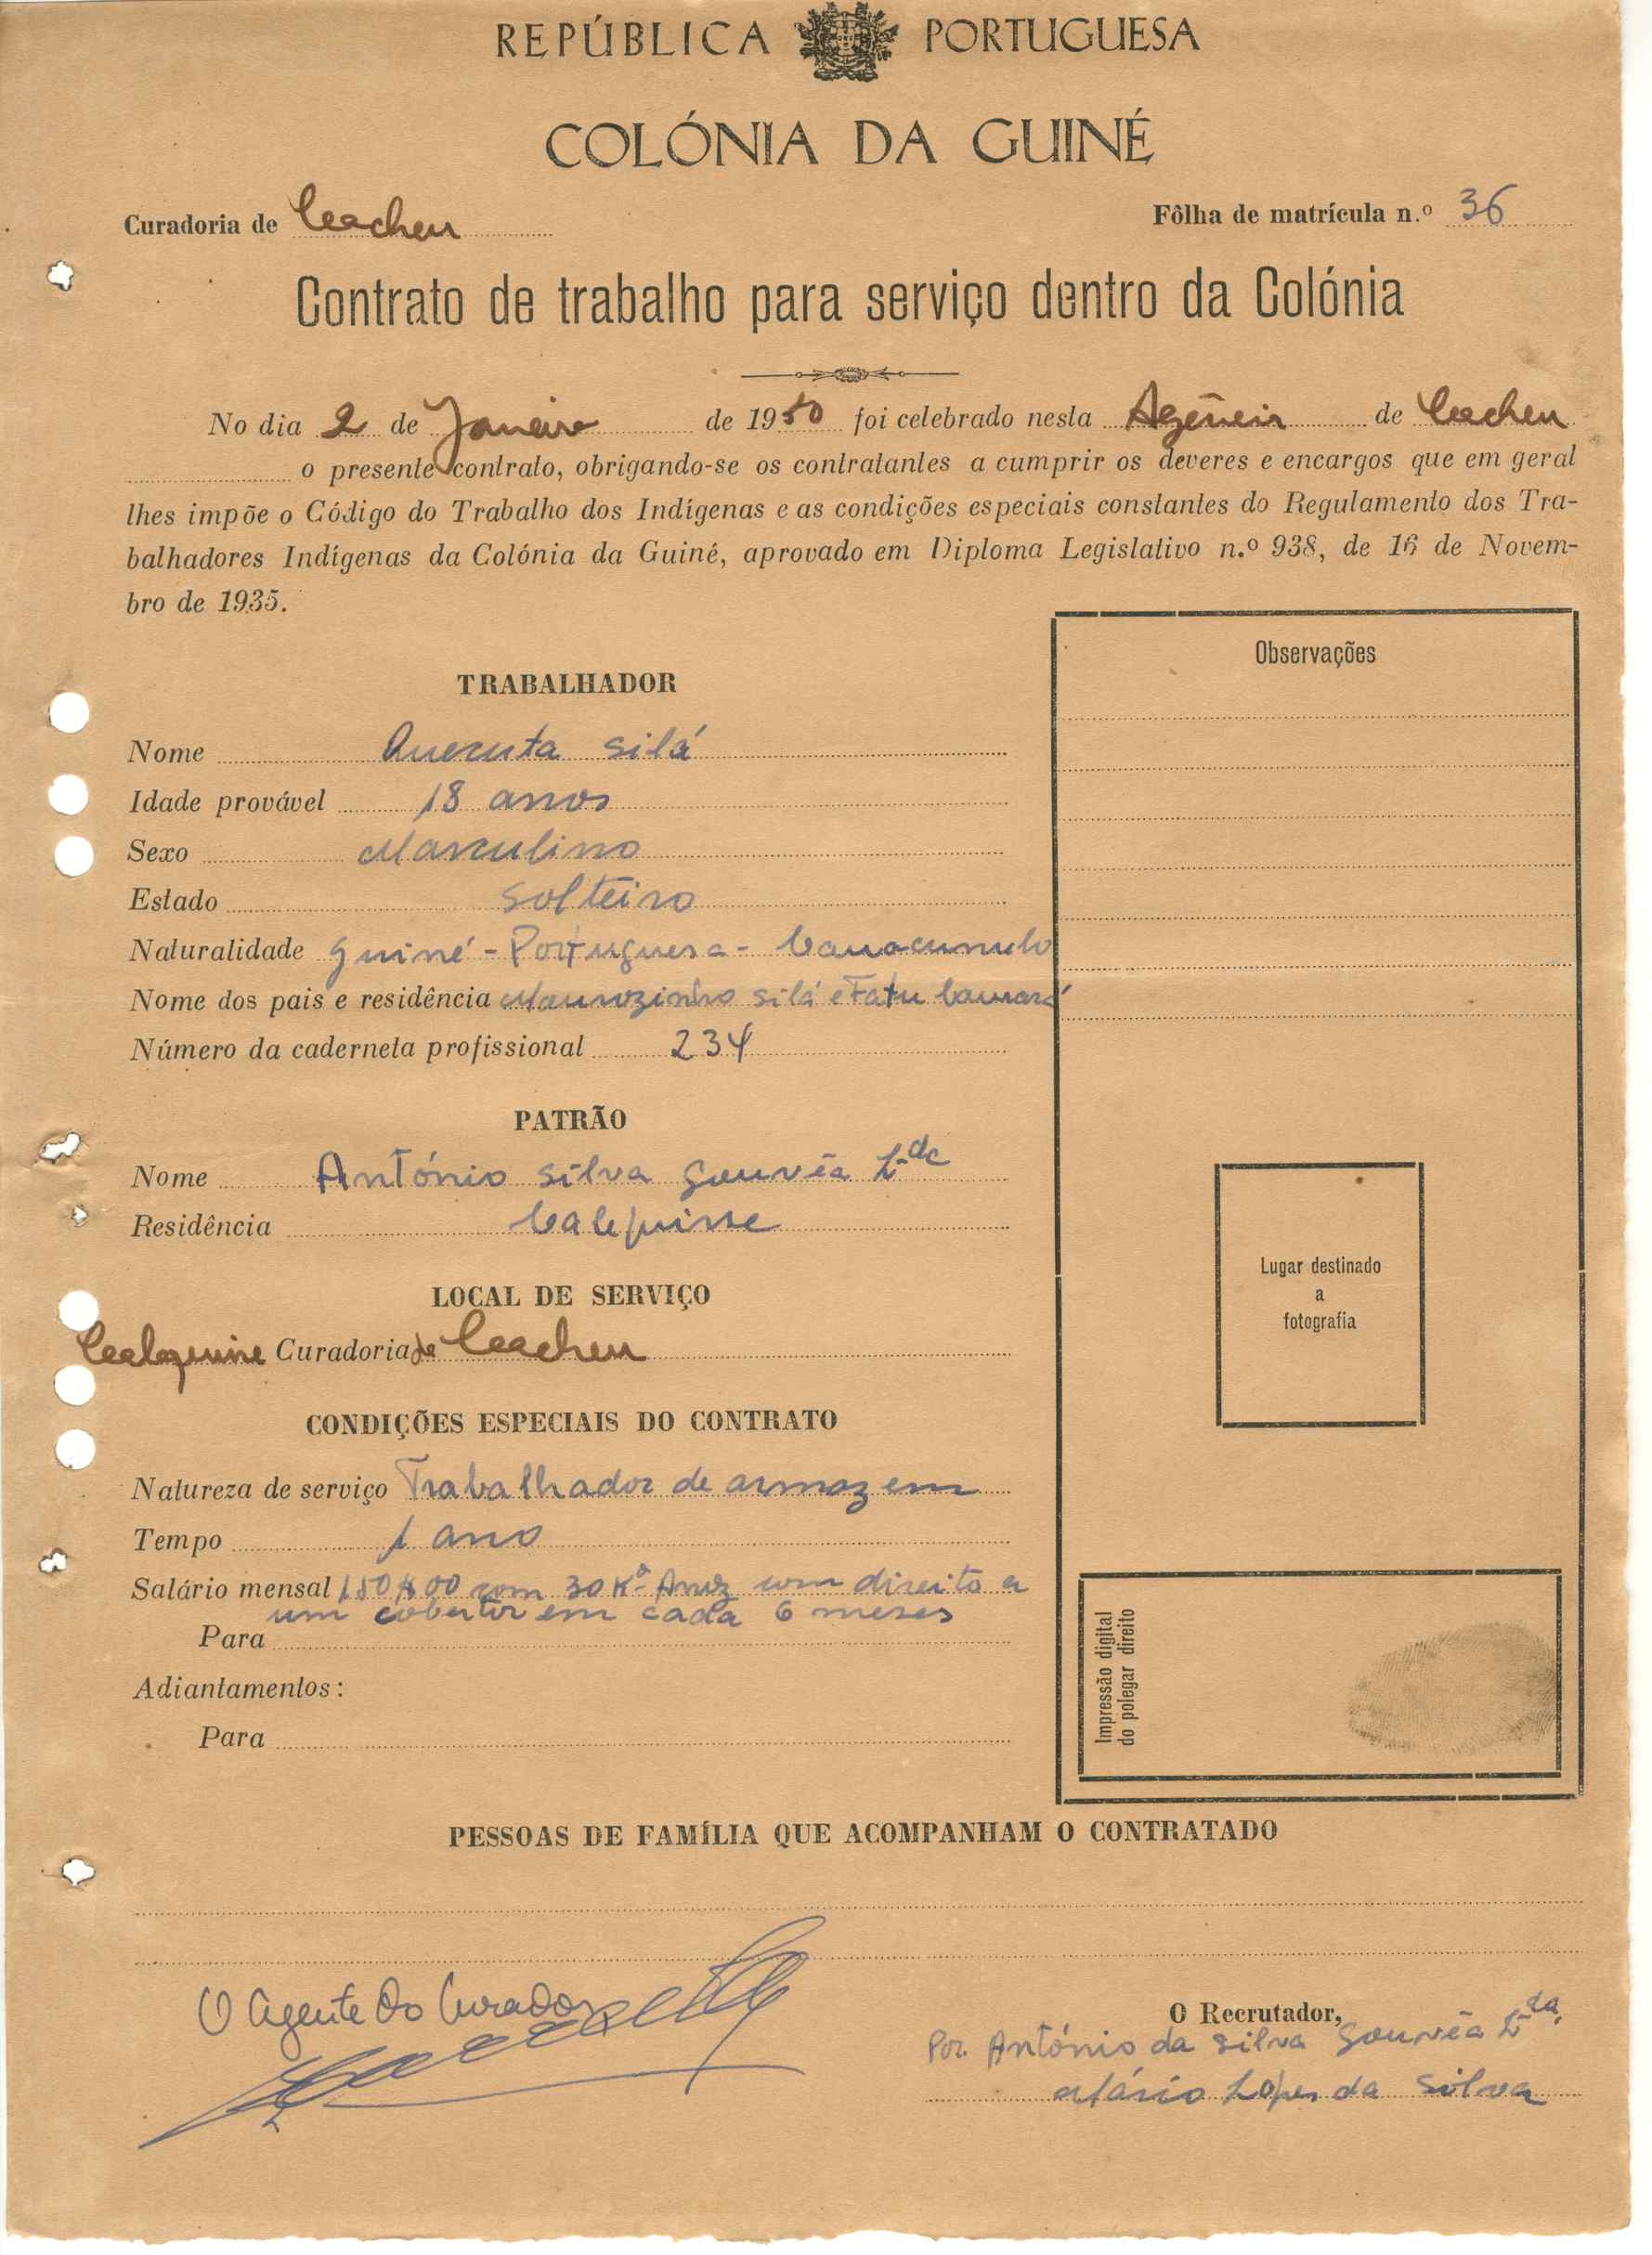 REPÚBLICA PORTUGUESA
COLÓNIA DA GUINÉ
Curadoria de Cacheu
Fôlha de matrícula n.º 36
Contrato de trabalho para serviço dentro da Colónia
No dia 2 de Janeiro de 1950 foi celebrado nesta Agência de Cacheu
o presente contrato, obrigando-se os contratantes a cumprir os deveres e encargos que em geral
lhes impõe o Código do Trabalho dos Indígenas e as condições especiais constantes do Regulamento dos Tra-
balhadores Indígenas da Colónia da Guiné, aprovado em Diploma Legislativo n.º 938, de 16 de Novem-
bro de 1935.
TRABALHADOR
Nome Quecuta Silá
Idade provável 18 anos
Sexo Masculino
Estado Solteiro
Naturalidade Guiné-Portuguesa-
Nome dos pais e residência Silá e Fatu Camará
Número da caderneta profissional 234
PATRÃO
Nome António Silva Gouvêa L.da
Residência Calequisse
LOCAL DE SERVIÇO
Calequisse Curadoria de Cacheu
CONDIÇÕES ESPECIAIS DO CONTRATO
Natureza de serviço Trabalhador de armazem
Tempo 1 ano
Salário mensal 150$00 com 30 K.º Arroz com direito a
um cobertor em cada 6 meses
Para
Adiantamentos:
Para
Observações
Lugar destinado
a
fotografia
Impressão digital
do polegar direito
PESSOAS DE FAMÍLIA QUE ACOMPANHAM O CONTRATADO
O Agente do Curador
O Recrutador,
Por António da Silva Gouvêa L.da,
Mário Lopes da Silva